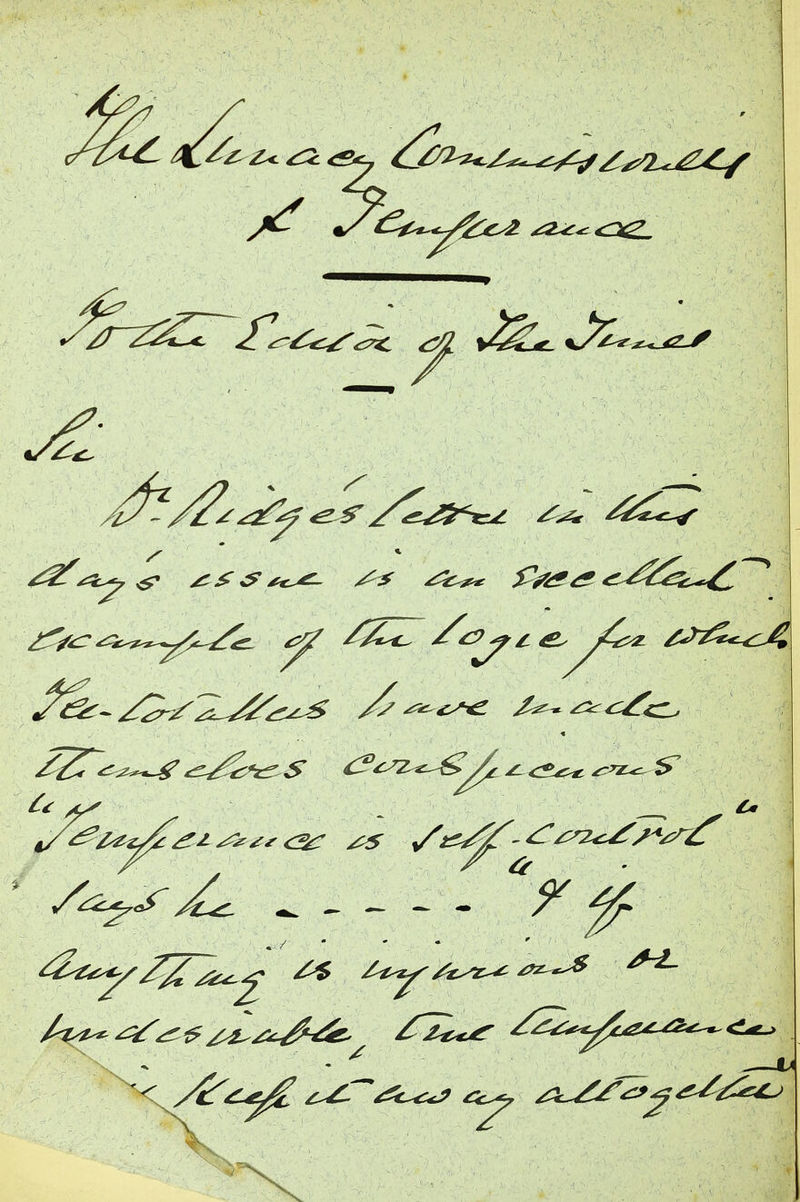 The Lunacy Commissioners
& Temperance
To the Editor of The Times
Sir
Dr. Ridge's letter in this
day's issue is an excellent
example of the logic for which
Tee-totallers have made
themselves conspicuous
"Temperance is self-control"
says he - - - - - "& if
anything is injurious or
undesirable, true temperance
is keep it away altogether"